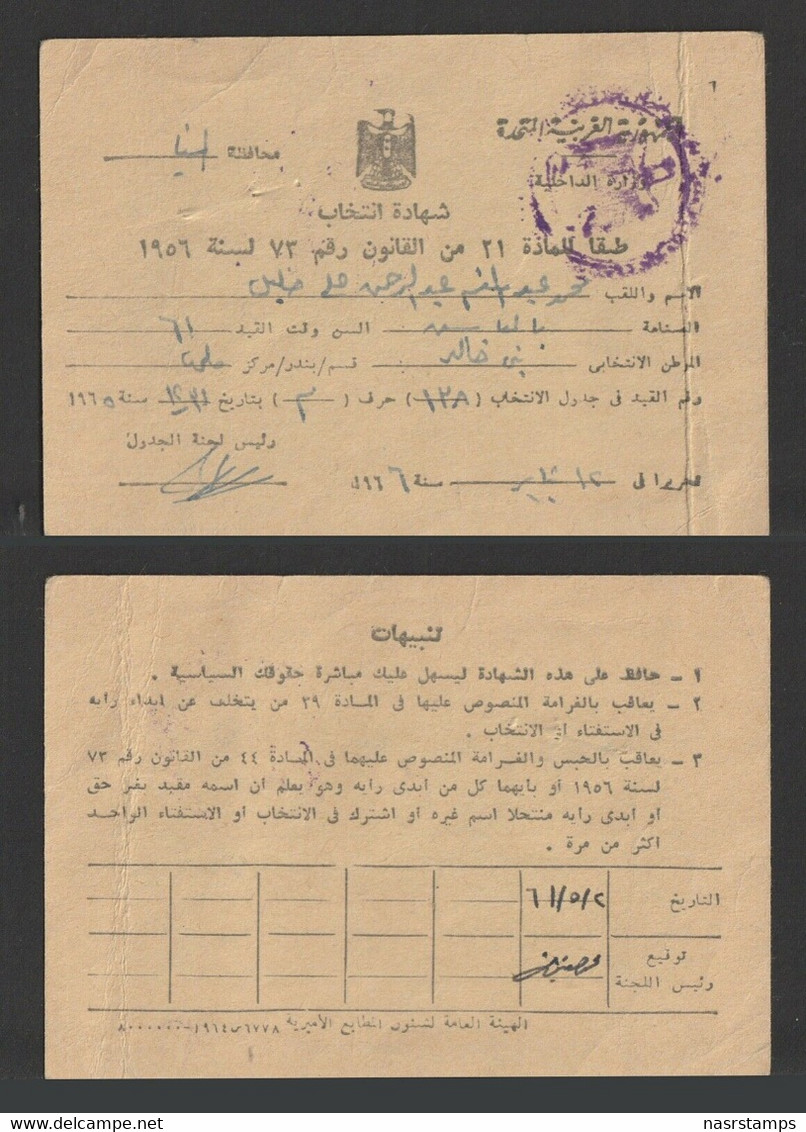 الجمهورية العربية المتحدة
وزارة الداخلية
محافظة المنيا
شهادة انتخاب
طبقا للمادة ٢١ من القانون رقم ٧٣ لسنة ١٩٥٦
الاسم واللقب محمد عبد المنعم عبد الرحمن على خليل
الصناعة السن وقت القيد ٦١
الموطن الانتخابى بنى خالد قسم/بندر/مركز ملوى
رقم القيد فى جدول الانتخاب (١٣٨) حرف (م) بتاريخ سنة ١٩٦٥
رئيس لجنة الجدول
تحريرا فى ١٢ يناير سنة ١٩٦٦
تنبيهات
١ - حافظ على هذه الشهادة ليسهل عليك مباشرة حقوقك السياسية .
٢ - يعاقب بالغرامة المنصوص عليها فى المادة ٣٩ من يتخلف عن ابداء رأيه
فى الاستفتاء أو الانتخاب .
٣ - يعاقب بالحبس والغرامة المنصوص عليهما فى المادة ٤٤ من القانون رقم ٧٣
لسنة ١٩٥٦ أو بأيهما كل من أبدى رأيه وهو يعلم أن اسمه مقيد بغير حق
أو أبدى رأيه منتحلا اسم غيره أو اشترك فى الانتخاب أو الاستفتاء الواحد
اكثر من مرة .
التاريخ
توقيع
رئيس اللجنة
الهيئة العامة لشئون المطابع الأميرية ٦٧٧٨ س ١٩٦٤ - ٨٠٠٠٠٠٠
www.delcampe.net
nasrstamps